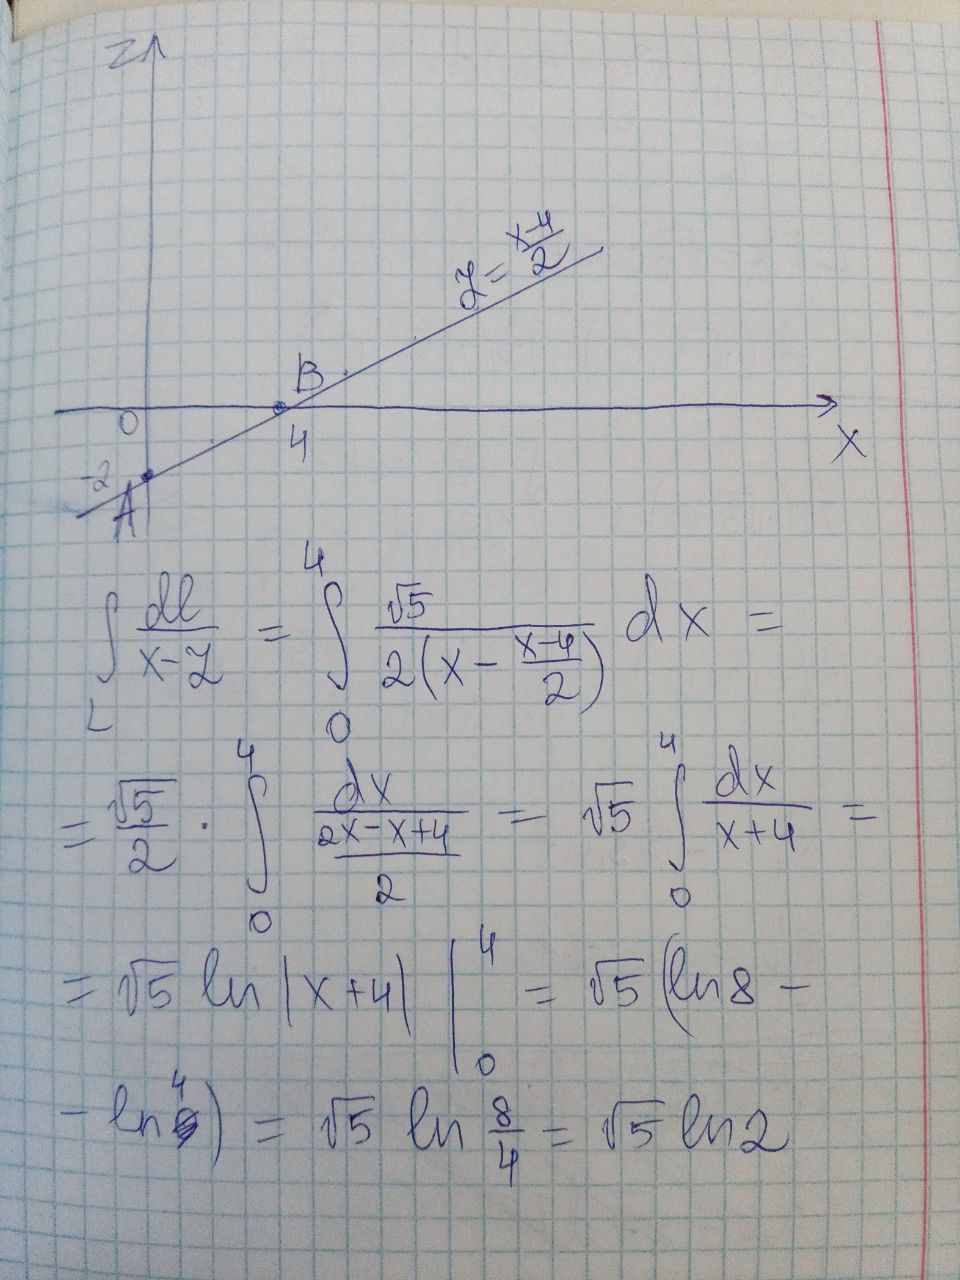 z
z = \frac{x-4}{2}
B
0
4
x
-2
A
\int_L \frac{dl}{x-z} = \int_0^4 \frac{\sqrt{5}}{2(x - \frac{x-4}{2})} dx =
= \frac{\sqrt{5}}{2} \cdot \int_0^4 \frac{dx}{\frac{2x-x+4}{2}} = \sqrt{5} \int_0^4 \frac{dx}{x+4} =
= \sqrt{5} ln |x+4| |_0^4 = \sqrt{5} (ln 8 -
- ln 4) = \sqrt{5} ln \frac{8}{4} = \sqrt{5} ln 2